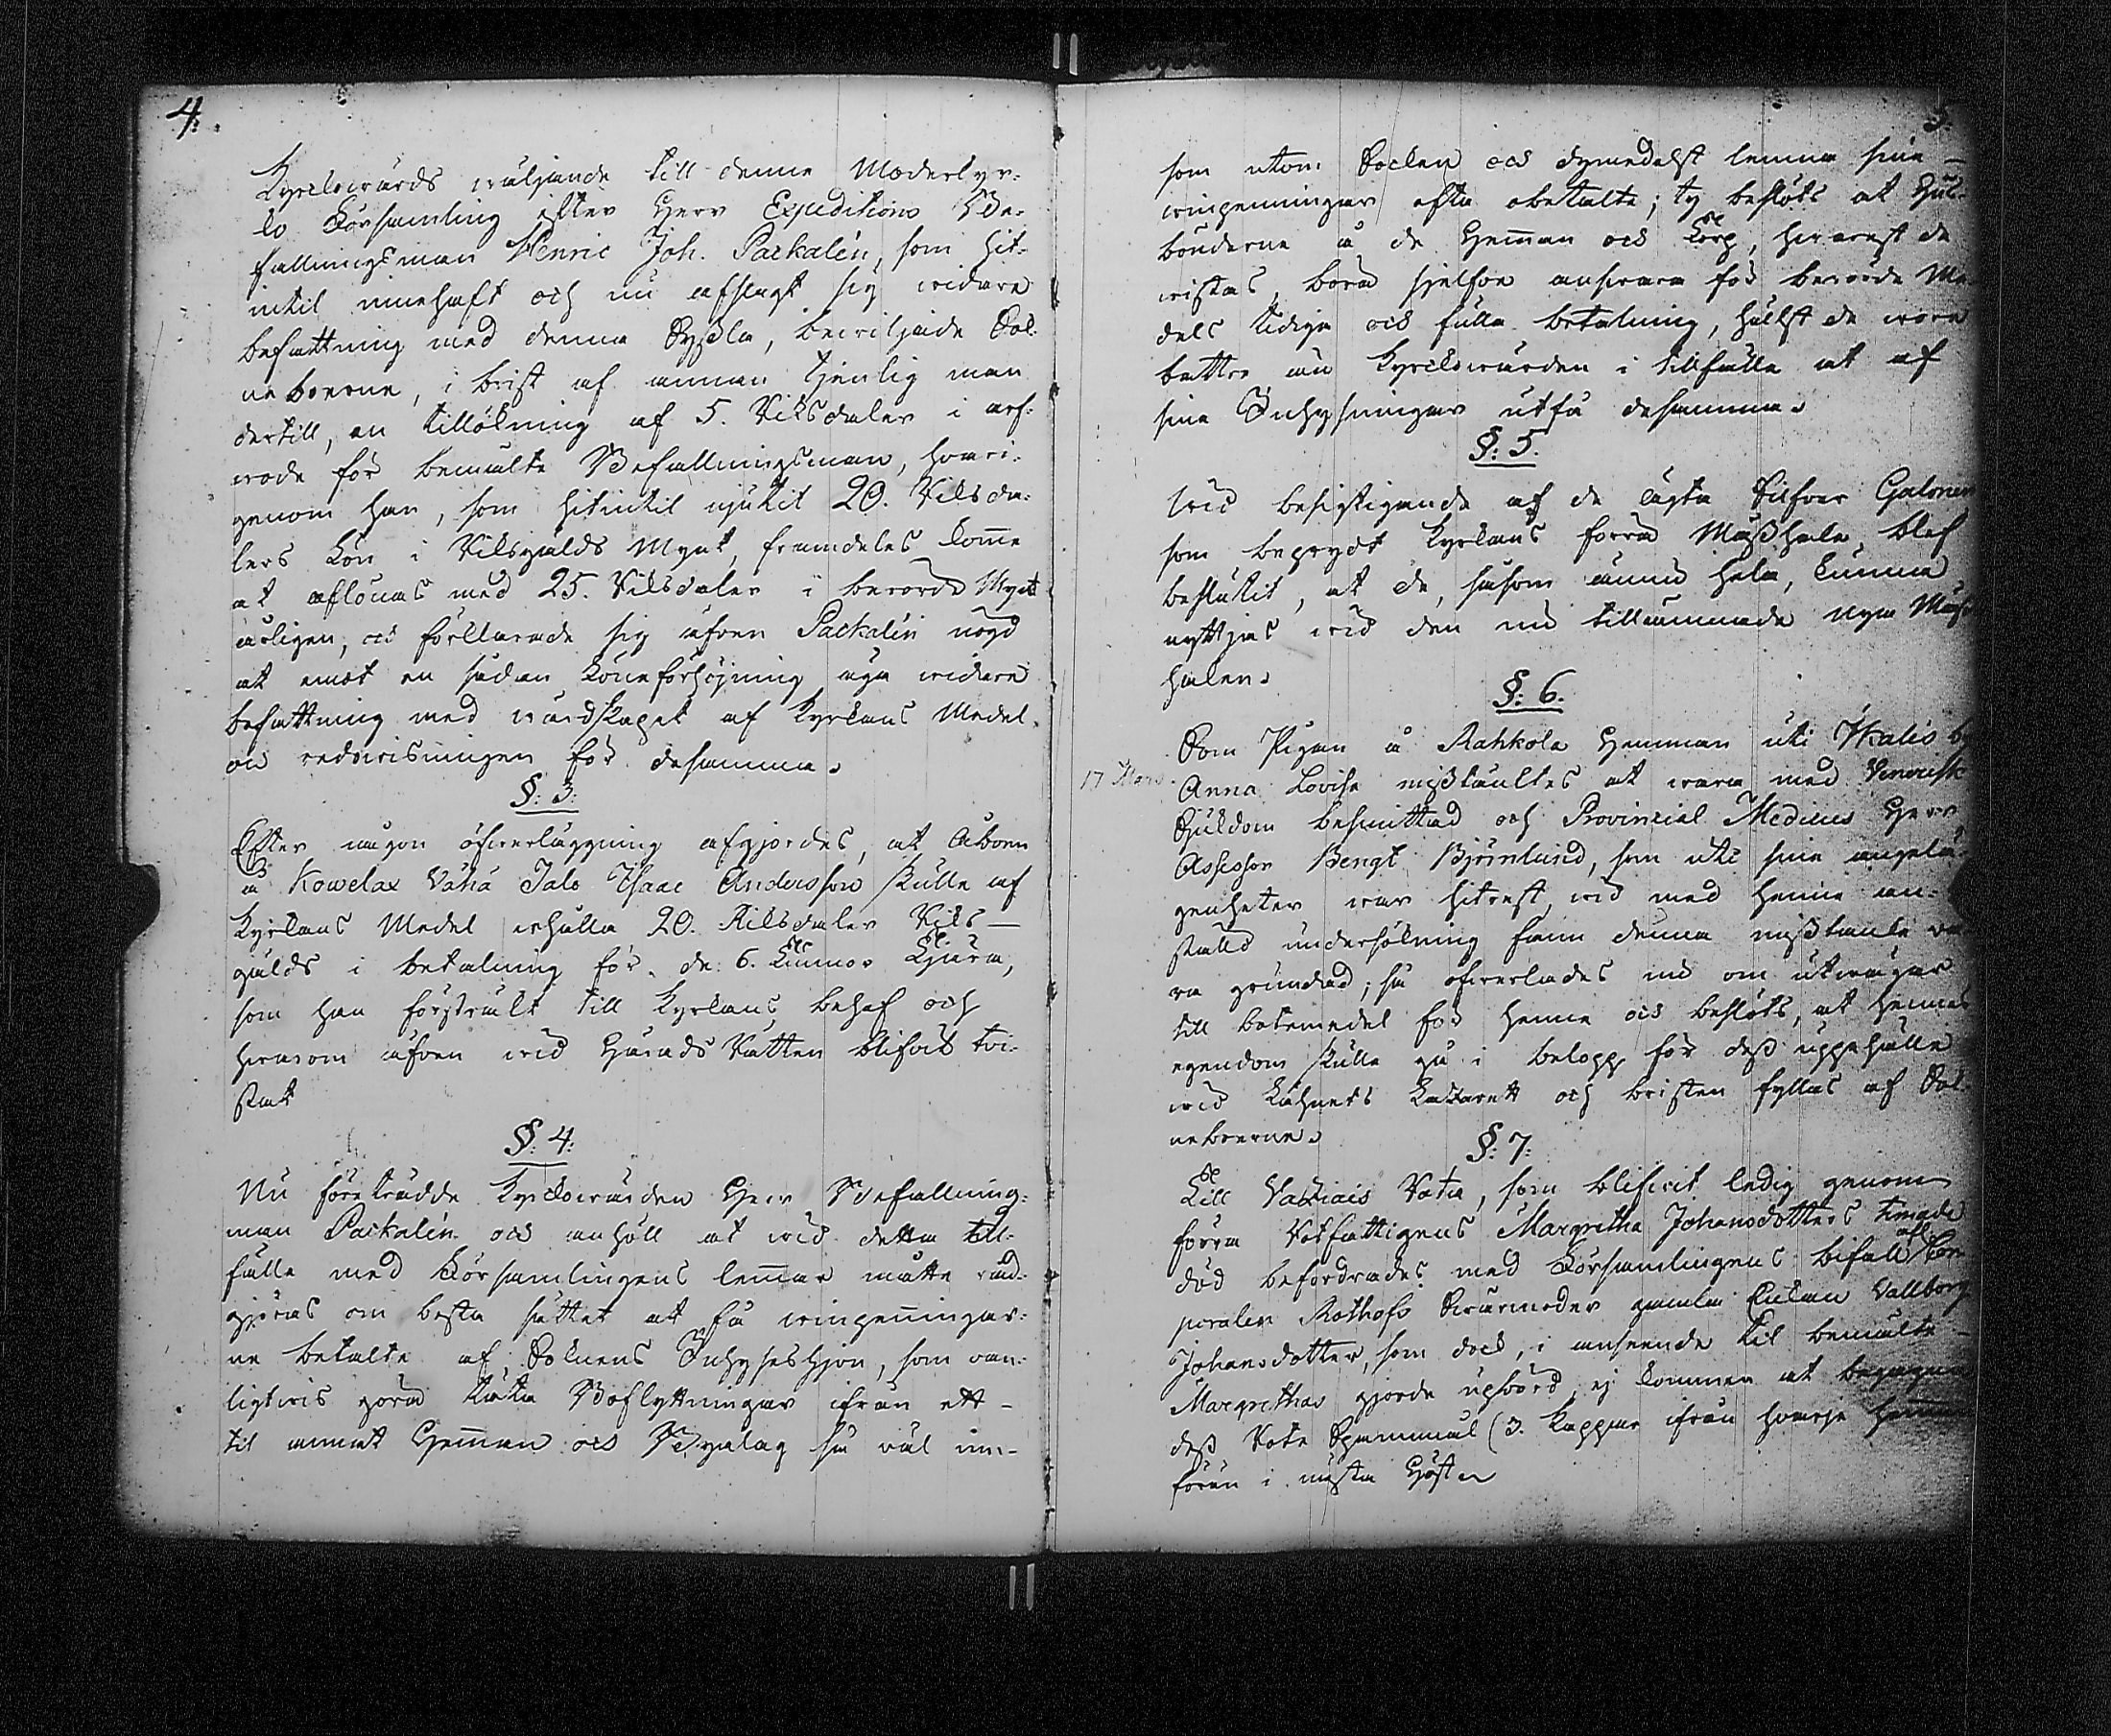 4.
Kyrckowärds wäljande till denna Moderkyr-
ko Församling efter Herr Expeditions Be-
fallningsman Henric Joh. Packalén, som hit-
intil innehaft och nu afsagt sig widare
befattning med denna Sysla, bewiljade Sok-
neboerne, i brist af annan tjenlig man
dertill, en tillökning af 5. Riksdaler i arf-
wode för bemälte Befallningsman, hwari-
genom han, som hitintil njutit 20. Riksda-
lers Lön i Riksgälds Mynt, framdeles komme
at aflönas med 25. Riksdaler i berörde Mynt
årligen, och förklarade sig äfven Packalén nögd
at emot en sådan Löneförhöjning äga widare
befattning med wårdskapet af Kyrkans Medel
och redowisningen för desamma.
§: 3:
Efter någon öfwerläggning afgjordes, at Åboen
å Kowelax Vähä Jalo Isaac Andersson skulle af
Kyrkans Medel erhålla 20. Riksdaler Riks-
gälds i betalning för de 6. Tunnor Tjära,
som han försträkt till Kyrkans behof och
hwarom äfven wid Härads Rätten blifvit twi-
stat
§: 4:
Nu företrädde Kyrckowärden Herr Befallning-
man Packalén och anhöll at wid detta till-
fälle med Församlingens lemmar måtte råd-
göras om bästa sättet at få winpenningar-
ne betalte af Soknens Inhyseshjon, som van-
ligtwis göra täta Bosflyttningar ifrån ett
til annat Hemman och Byalag så väl in-
5.
som utom Socken och dymedelst lemna sine
winpenningar ofta obetalte; ty beslöts at Hus-
bönderne å de Hemman och Torp, hwarest de
wistas, böra sjelfve answara för berörde Me-
dels tidiga och fulla betalning, hälst de wore
bättre än Kyrckowärden i tillfälle at af
sine Inhysningar utfå desamma.
§: 5.
Wid besigtigande af de ägta Silfver Galoner
som beprydt Kyrkans förra Mässhake, blef
beslutit, at de, såsom ännu hela, kunna
nyttjas wid den nu tillämnade nya Mäss-
haken.
§: 6.
17 Mars.
Som Pigan å Rahkola Hemman uti Ykalis by
Anna Lovisa misstänktes at wara med Venerisk
Sjukdom besmittad och Provincial Medicus Herr
Assessor Bengt Björnlund, som uti sine angelä-
genheter war hitrest, wid med henne an-
stäld undersökning fann denna misstanke wa-
ra grundad; så öfwerlades nu om utwägar
till botemedel för henne och beslöts, at hennes
egendom skulle gå i belopp för dess uppehälle
wid Lähnets Lazarett och bristen fyllas af Sok-
neboerne.
§: 7:
Till Vakiais Rota, som blifwit ledig genom
förra Rotfattigens Margretha Johansdotters timade
död befordrades med Församlingens bifall afl. Cor-
poralen Rothofs Swärmoder gamla Enkan Vallborg
Johansdotter, som dock, i anseende til bemälte
Margrethas gjorde upbörd, ej kommer at begagna
dess Rote Spannmål (3. Kappar ifrån hwarje Hemman
förän i nästa Höst